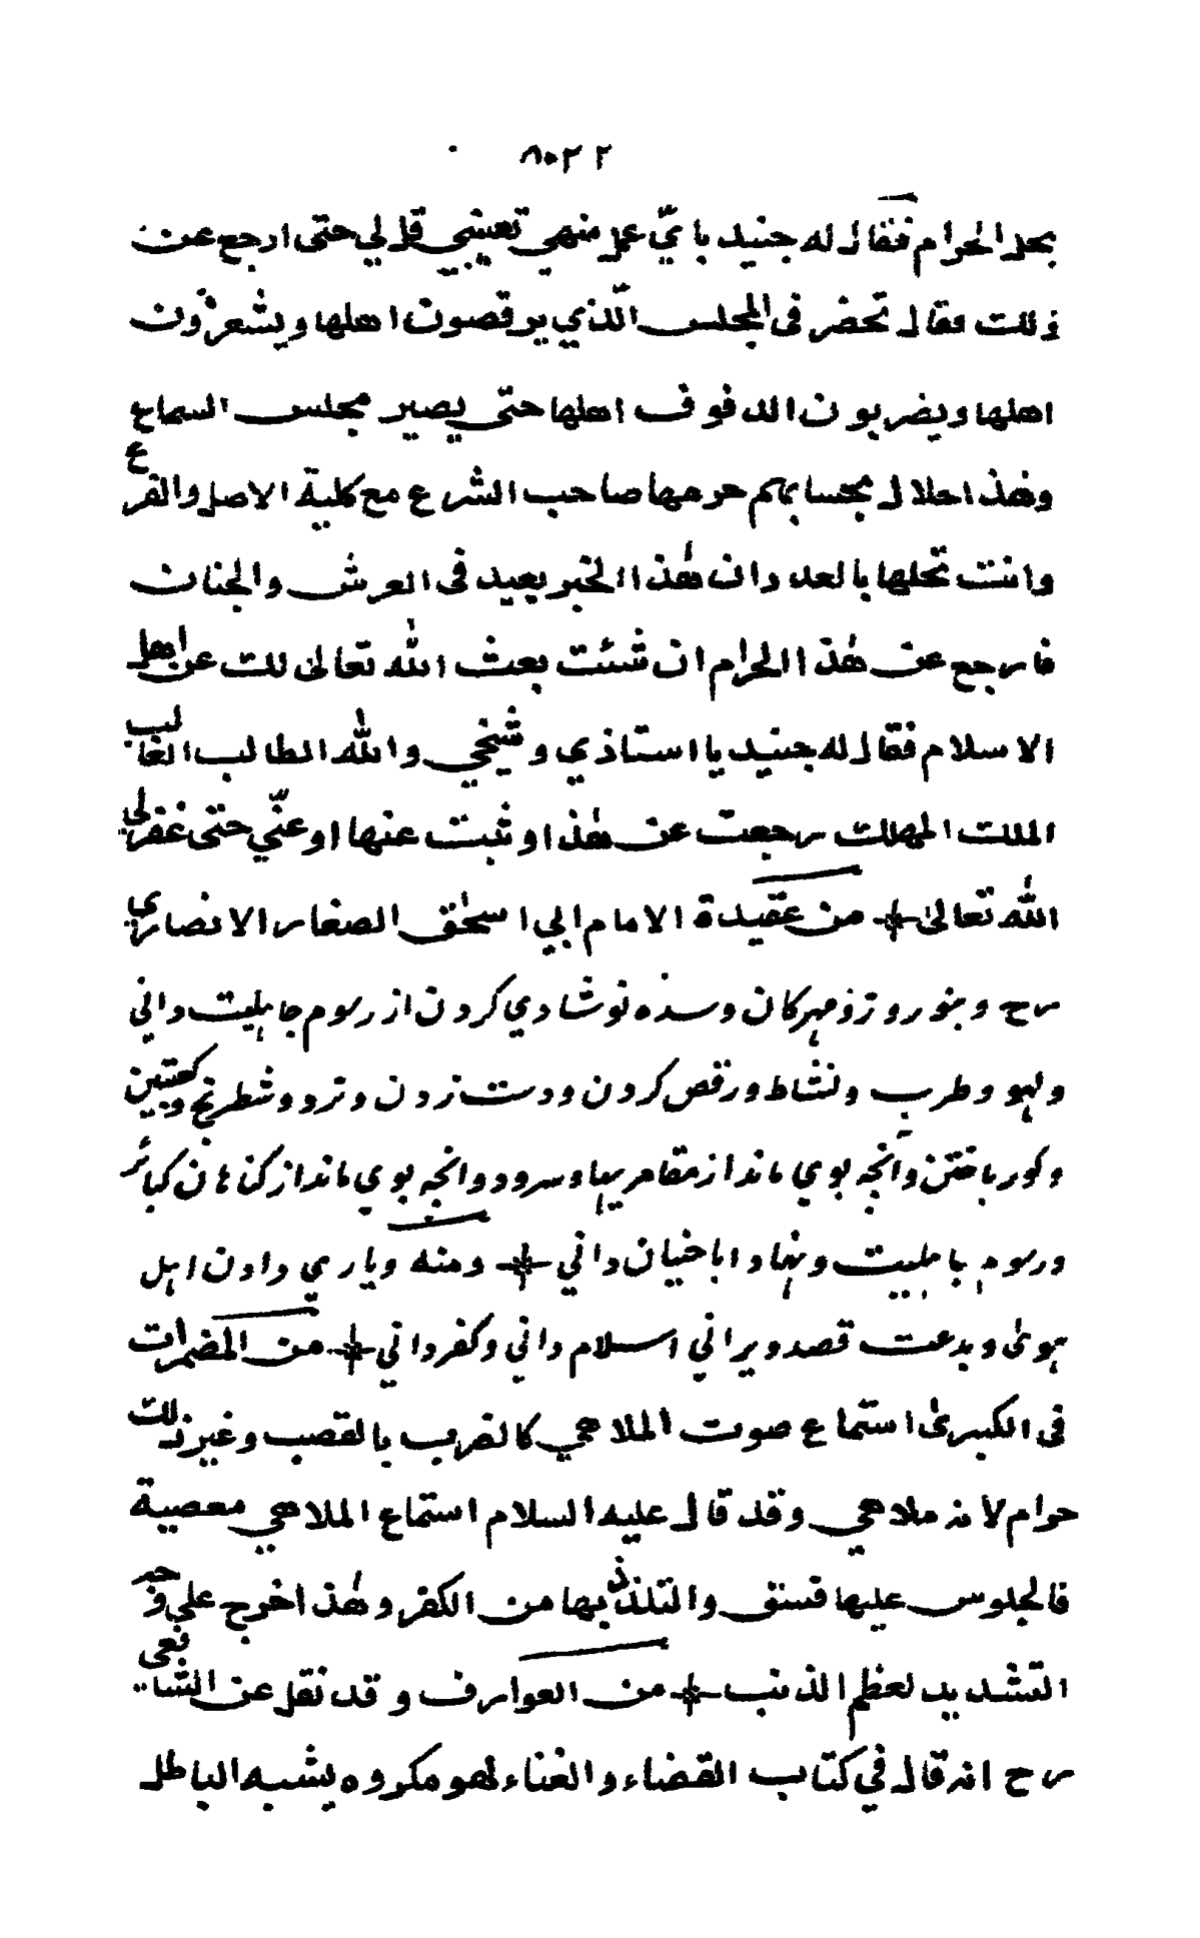 ٨٠٢٢
بحل الحرام فقال له جنيد باي عمل منهي تعيبني قل لي حتى ارجع عن
ذلك فقال تحضر فى المجلس الذي يرقصون اهلها ويشعرون
اهلها ويضربون الدفوف اهلها حتى يصير مجلس السماع
وهذ احلال بحسابكم حرمها صاحب الشرع مع كلية الاصل والفرع
وانت تحلها بالعدد ان هٰذا الخبر بعيد فى العرش والجنان
فارجع عن هٰذا الحرام ان شئت بعث الله تعالى لك عن اهل
الاسلام فقال له جنيد يا استاذي وشيخي والله الطالب الغالب
الملك المهلك رجعت عن هٰذا وثبت عنها اوعنّي حتى غفر لي
الله تعالىٰ من عقيدة الامام ابي اسحٰق الصغار الانصاري
رح وبنوروز ومهركان وسذه نوشادي كردن از رسوم جاہليت داني
ولہو وطرب ونشاط ورقص كردن ودست زدن ونرد وشطرنج وكعبتين
وكور باختن وانجہ بوي ماند از مقامريہا وسرود وانجہ بوي ماند از كناہان كبائر
ورسوم جاہليت ونہاد اباحيان داني ومنه وياري دادن اہل
ہوىٰ وبدعت قصد ويراني اسلام داني وكفر داني من المضمرات
فى الكبرىٰ استماع صوت الملاهي كالضرب بالقصب وغير ذلك
حرام لانه ملاهي وقد قال عليه السلام استماع الملاهي معصية
فالجلوس عليها فسق والتلذذ بها من الكفر وهٰذا خرج علي وجه
التشديد لعظم الذنب من العوارف وقد نقل عن الشافعى
رح انه قال في كتاب القضاء والغناء لهو مكروه يشبه الباطل